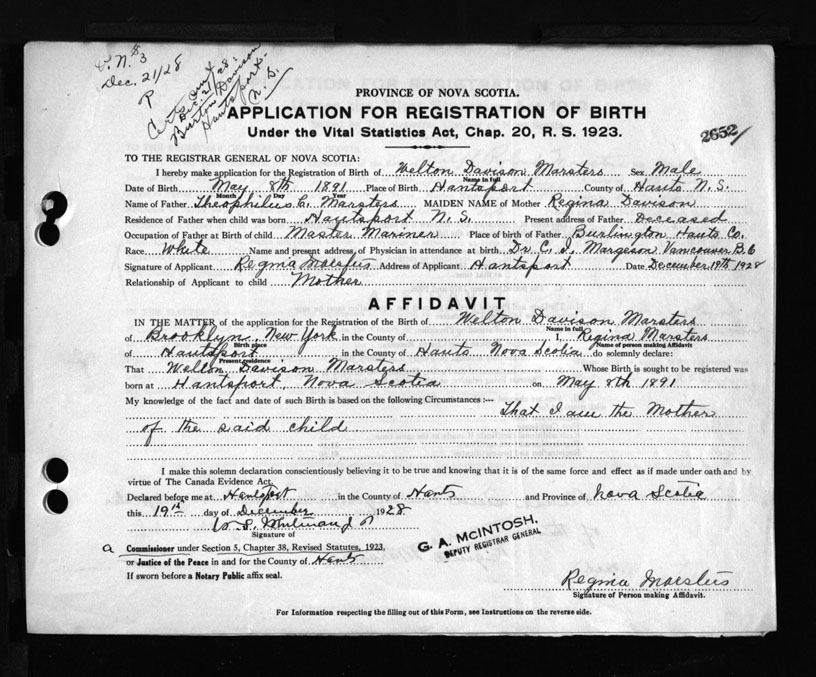 C. N. $3
Dec. 21/28
P
Cert. out
Dec. 21/28.
Burton Davison
Hantsport.
N. S.
PROVINCE OF NOVA SCOTIA.
APPLICATION FOR REGISTRATION OF BIRTH
Under the Vital Statistics Act, Chap. 20, R. S. 1923.
2652/
TO THE REGISTRAR GENERAL OF NOVA SCOTIA:
I hereby make application for the Registration of Birth of Welton Davison Marsters Sex Male
Name in full
Date of Birth May 8th 1891 Place of Birth Hantsport County of Hants N. S.
Month Day Year
Name of Father Theophilus C. Marsters MAIDEN NAME of Mother Regina Davison
Residence of Father when child was born Hantsport N. S. Present address of Father Deceased
Occupation of Father at Birth of child Master Mariner Place of birth of Father Burlington Hants Co.
Race White Name and present address of Physician in attendance at birth Dr. C. I. Margeson Vancouver B. C
Signature of Applicant Regina Marsters Address of Applicant Hantsport Date December 19th 1928
Relationship of Applicant to child Mother
AFFIDAVIT
IN THE MATTER of the application for the Registration of the Birth of Welton Davison Marsters
Name in full
of Brooklyn, New York in the County of I, Regina Marsters
Birth place Name of person making Affidavit
of Hantsport in the County of Hants Nova Scotia do solemnly declare:
Present residence
That Welton Davison Marsters Whose Birth is sought to be registered was
born at Hantsport, Nova Scotia on May 8th 1891
My knowledge of the fact and date of such Birth is based on the following Circumstances :—
That I am the Mother
of the said child
I make this solemn declaration conscientiously believing it to be true and knowing that it is of the same force and effect as if made under oath and by
virtue of The Canada Evidence Act.
Declared before me at Hantsport in the County of Hants and Province of Nova Scotia
this 19th day of December 1928
Signature of
a Commissioner under Section 5, Chapter 38, Revised Statutes, 1923.
or Justice of the Peace in and for the County of Hants
If sworn before a Notary Public affix seal.
G. A. McINTOSH,
DEPUTY REGISTRAR GENERAL
Regina Marsters
Signature of Person making Affidavit.
For Information respecting the filling out of this Form, see Instructions on the reverse side.